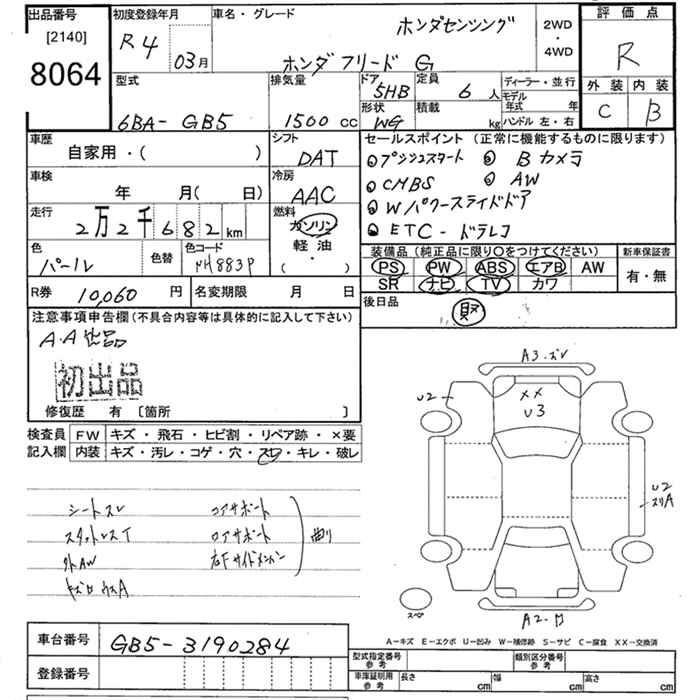 出品番号
[2140]
8064
初度登録年月
R4 03月
車名・グレード
ホンダセンシング
ホンダフリード G
2WD
・
4WD
評価点
R
外装 内装
C B
型式
6BA-GB5
排気量
1500 cc
ドア
5HB
形状
WG
定員
6 人
積載
kg
ディーラー・並行
モデル年式 年
ハンドル 左・右
車歴
自家用・( )
シフト
DAT
車検
年 月( 日)
冷房
AAC
走行
2万2千682 km
燃料
ガソリン
軽油
( ・ )
色
パール
色替
色コード
NH883P
R券 10,060 円
名変期限 月 日
セールスポイント (正常に機能するものに限ります)
プッシュスタート
Bカメラ
CMBS
AW
Wパワースライドドア
ETC-ドラレコ
装備品 (純正品に限り〇をつけてください)
PS PW ABS エアB AW
SR ナビ TV カワ
新車保証書
有・無
後日品
取
注意事項申告欄(不具合内容等は具体的に記入して下さい)
A.A出品
初出品
修復歴 有 〔箇所 〕
検査員記入欄
FW キズ・飛石・ヒビ割・リペア跡・×要
内装 キズ・汚レ・コゲ・穴・スレ・キレ・破レ
シートスレ
コアサポート
ロアサポート
右Fサイドメンバー
曲り
外AW
A3・ズレ
U2
XX
U3
U2
スリA
スペ
A2-ロ
A-キズ E-エクボ U-凹み W-補修跡 S-サビ C-腐食 XX-交換済
車台番号 GB5-3190284
登録番号
型式指定番号 参考
類別区分番号 参考
車庫証明用 参考
長さ cm
幅 cm
高さ cm